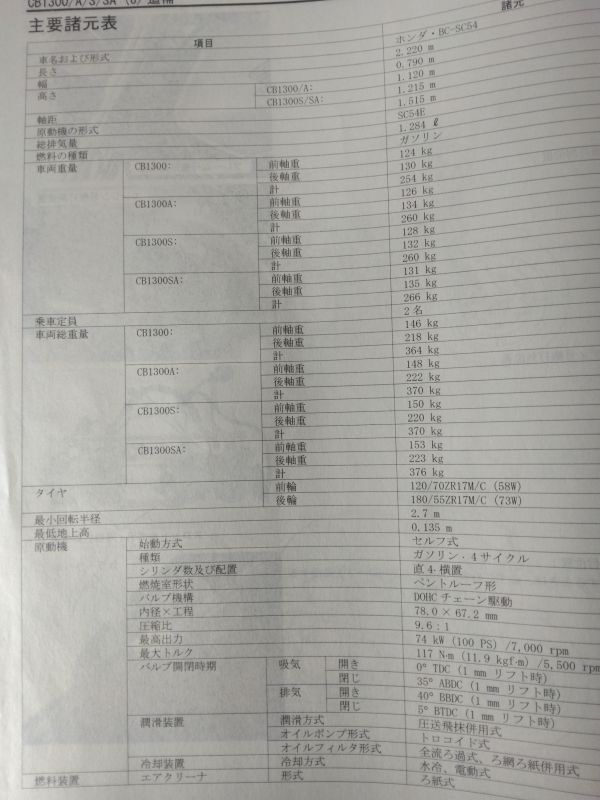 CB1300/A/S/SA (6) 追補
主要諸元表
項目 諸元
車名および形式 ホンダ・BC-SC54
長さ 2.220 m
幅 0.790 m
高さ CB1300/A: 1.120 m
CB1300S/SA: 1.215 m
軸距 1.515 m
原動機の形式 SC54E
総排気量 1.284 ℓ
燃料の種類 ガソリン
車両重量 CB1300: 前軸重 124 kg
後軸重 130 kg
計 254 kg
CB1300A: 前軸重 126 kg
後軸重 134 kg
計 260 kg
CB1300S: 前軸重 128 kg
後軸重 132 kg
計 260 kg
CB1300SA: 前軸重 131 kg
後軸重 135 kg
計 266 kg
乗車定員 2 名
車両総重量 CB1300: 前軸重 146 kg
後軸重 218 kg
計 364 kg
CB1300A: 前軸重 148 kg
後軸重 222 kg
計 370 kg
CB1300S: 前軸重 150 kg
後軸重 220 kg
計 370 kg
CB1300SA: 前軸重 153 kg
後軸重 223 kg
計 376 kg
タイヤ 前輪 120/70ZR17M/C (58W)
後輪 180/55ZR17M/C (73W)
最小回転半径 2.7 m
最低地上高 0.135 m
原動機 始動方式 セルフ式
種類 ガソリン・4サイクル
シリンダ数及び配置 直4・横置
燃焼室形状 ペントルーフ形
バルブ機構 DOHC チェーン駆動
内径×工程 78.0 × 67.2 mm
圧縮比 9.6:1
最高出力 74 kW (100 PS) /7,000 rpm
最大トルク 117 N·m (11.9 kgf·m) /5,500 rpm
バルブ開閉時期 吸気 開き 0° TDC (1 mm リフト時)
閉じ 35° ABDC (1 mm リフト時)
排気 開き 40° BBDC (1 mm リフト時)
閉じ 5° BTDC (1 mm リフト時)
潤滑装置 潤滑方式 圧送飛抹併用式
オイルポンプ形式 トロコイド式
オイルフィルタ形式 全流ろ過式、ろ網ろ紙併用式
冷却装置 冷却方式 水冷、電動式
燃料装置 エアクリーナ 形式 ろ紙式